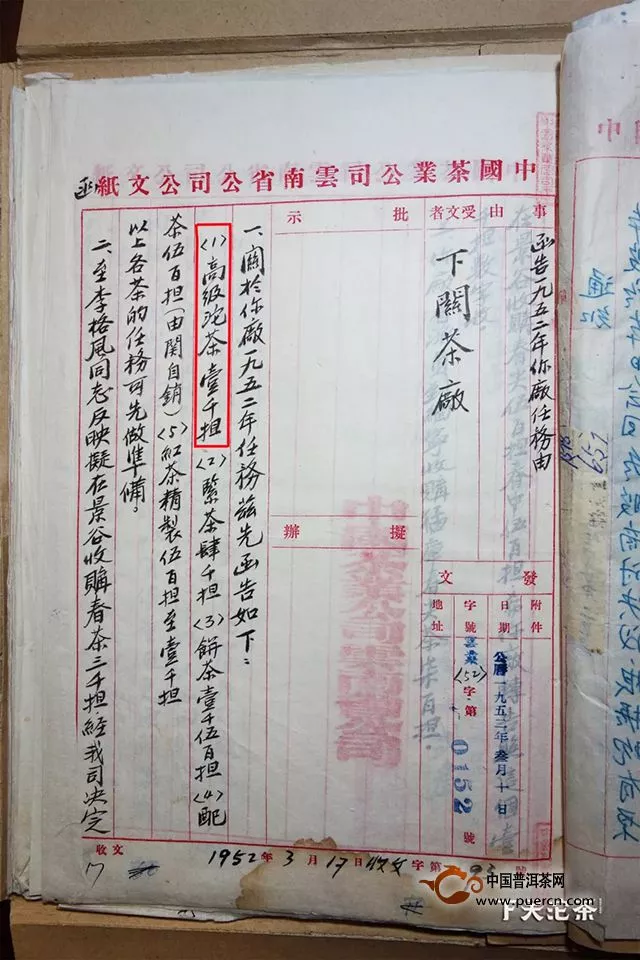 中國茶業公司雲南省公司公文紙
函
事由
函告一九五二年你廠任務由
受文者
下關茶廠
批示
擬辦
發文
附件
日期
公曆一九五二年叁月十日
字號
雲業〈52〉字第0152號
地址
一、關於你廠一九五二年任務茲先函告如下：
〈1〉高級沱茶壹千担〈2〉緊茶肆千担〈3〉餅茶壹千伍百担〈4〉配
茶伍百担(由関自銷)〈5〉紅茶精製伍百担至壹千担
以上各茶的任務可先做準備。
二、至李格風同志反映擬在景谷收購春茶三千担經我司決定
收文
1952年3月17日收文字第93號
中國茶業公司雲南省公司
中国普洱茶网
www.puercn.com
下关沱茶